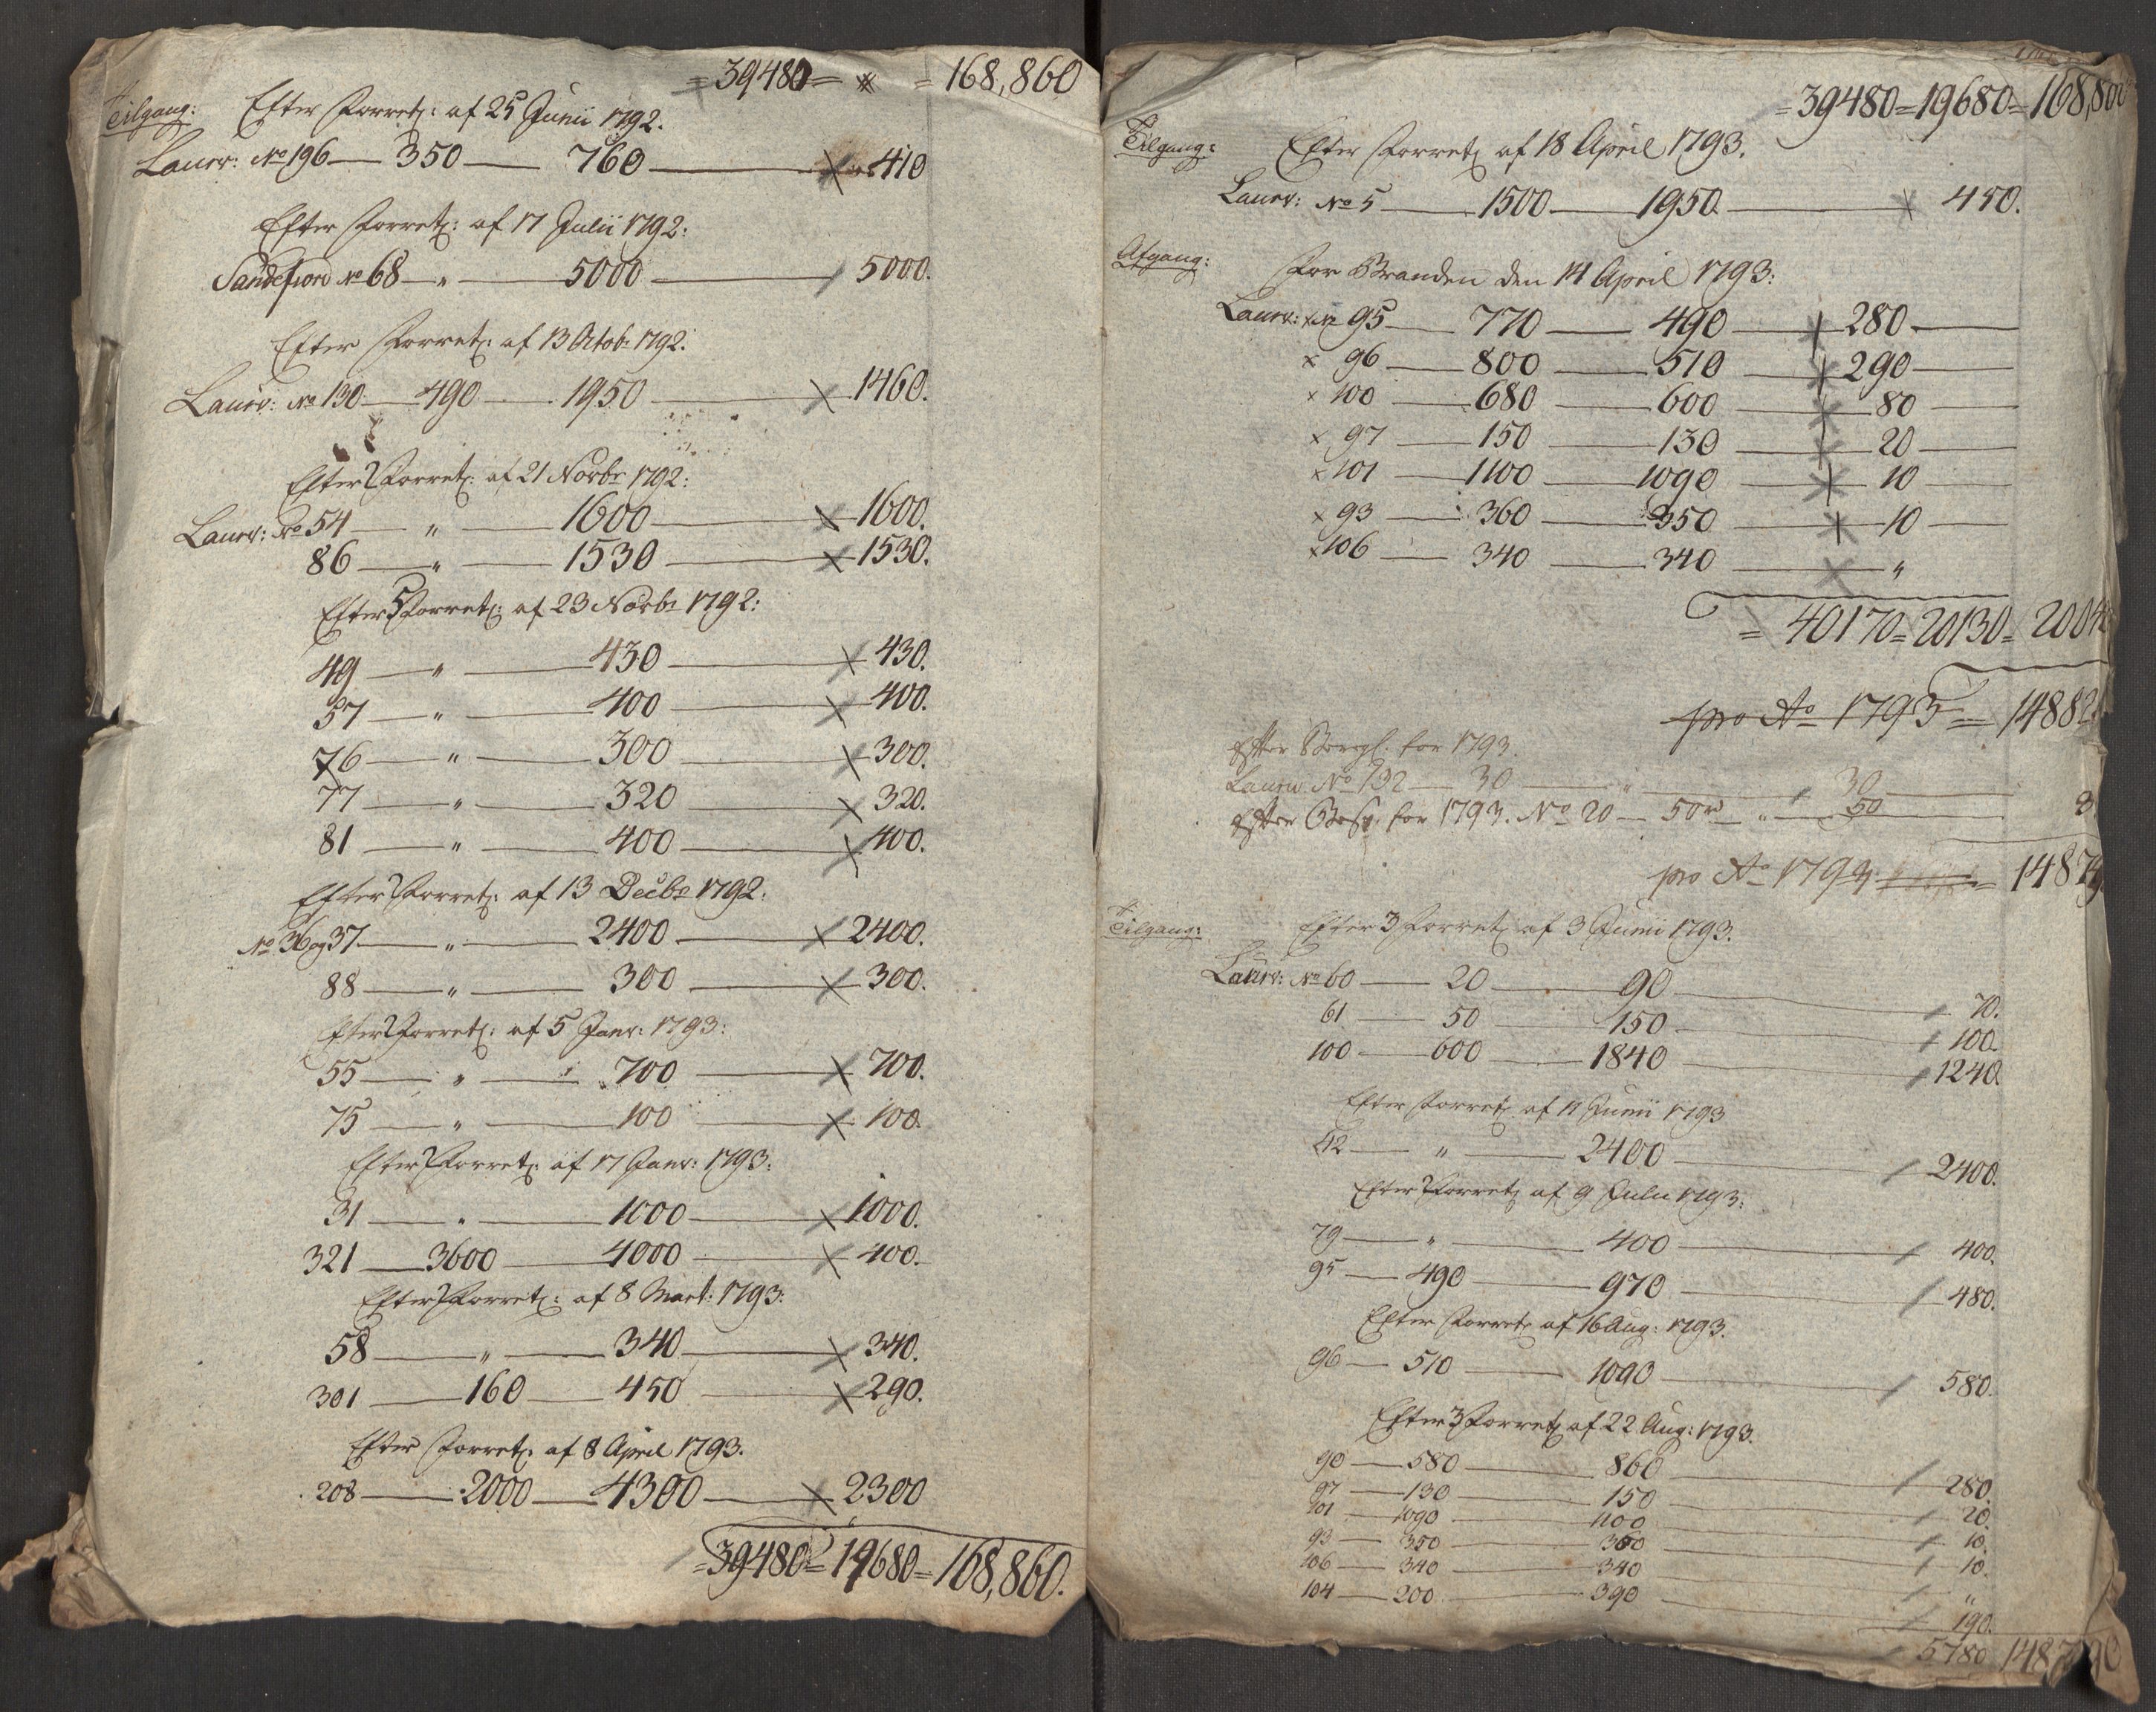 = 39480 = = 168,860
Tilgang: Efter Forretn: af 25 Junii 1792.
Laurv: No 196 — 350 — 760 — 410
Efter Forretn: af 17 Julii 1792:
Sandefiord No 68 — " — 5000 — 5000.
Efter Forretn: af 13 Octob: 1792.
Laurv: No 130 — 490 — 1950 — 1460.
Efter 2 Forretn: af 21 Novbr 1792:
Laurv: No 54 — " — 1600 — 1600.
86 — " — 1530 — 1530.
Efter 5 Forretn: af 23 Novbr 1792:
49 — " — 430 — 430.
57 — " — 400 — 400.
76 — " — 300 — 300.
77 — " — 320 — 320.
81 — " — 400 — 400.
Efter 2 Forretn: af 13 Decbr 1792:
No 36 og 37 — " — 2400 — 2400.
88 — " — 300 — 300.
Efter 2 Forretn: af 5 Janv: 1793:
55 — " — 700 — 700.
75 — " — 100 — 100.
Efter 2 Forretn: af 17 Janv: 1793:
31 — " — 1000 — 1000.
321 — 3600 — 4000 — 400.
Efter 2 Forretn: af 8 Mart: 1793:
58 — " — 340 — 340.
301 — 160 — 450 — 290.
Efter Forretn: af 8 April 1793.
208 — 2000 — 4300 — 2300
= 39480 = 19680 = 168,860.
= 39480 = 19680 = 168,860
Tilgang: Efter Forretn af 18 April 1793.
Laurv: No 5 — 1500 — 1950 — 450.
Afgang: For Branden den 14 April 1793:
Laurv: No 95 — 770 — 490 — 280 —
× 96 — 800 — 510 — 290 —
× 100 — 680 — 600 — 80 —
× 97 — 150 — 130 — 20 —
× 101 — 1100 — 1090 — 10 —
× 93 — 360 — 350 — 10 —
× 106 — 340 — 340 — "
= 40170 = 20130 = 2004
pro Ao 1793 = 14882
efter for 1793.
Laurv No 132 — 30 — " — 30
efter Besig: for 1793. No 20 — 50 — " — 50 8
pro Ao 1793 = 14874
Tilgang: Efter 3 Forretn af 3 Junii 1793.
Laurv: No 60 — 20 — 90 — 70.
61 — 50 — 150 — 100.
100 — 600 — 1840 — 1240.
Efter Forretn af 11 Junii 1793
42 — " — 2400 — 2400.
Efter 2 Forretn af 9 Julii 1793:
79 — " — 400 — 400.
95 — 490 — 970 — 480.
Efter Forretn af 16 Aug: 1793.
96 — 510 — 1090 — 580.
Efter 3 Forretn af 22 Aug: 1793.
90 — 580 — 860 — 280.
97 — 130 — 150 — 20.
101 — 1090 — 1100 — 10.
93 — 350 — 360 — 10.
106 — 340 — 340 — "
104 — 200 — 390 — 190.
5780 148790